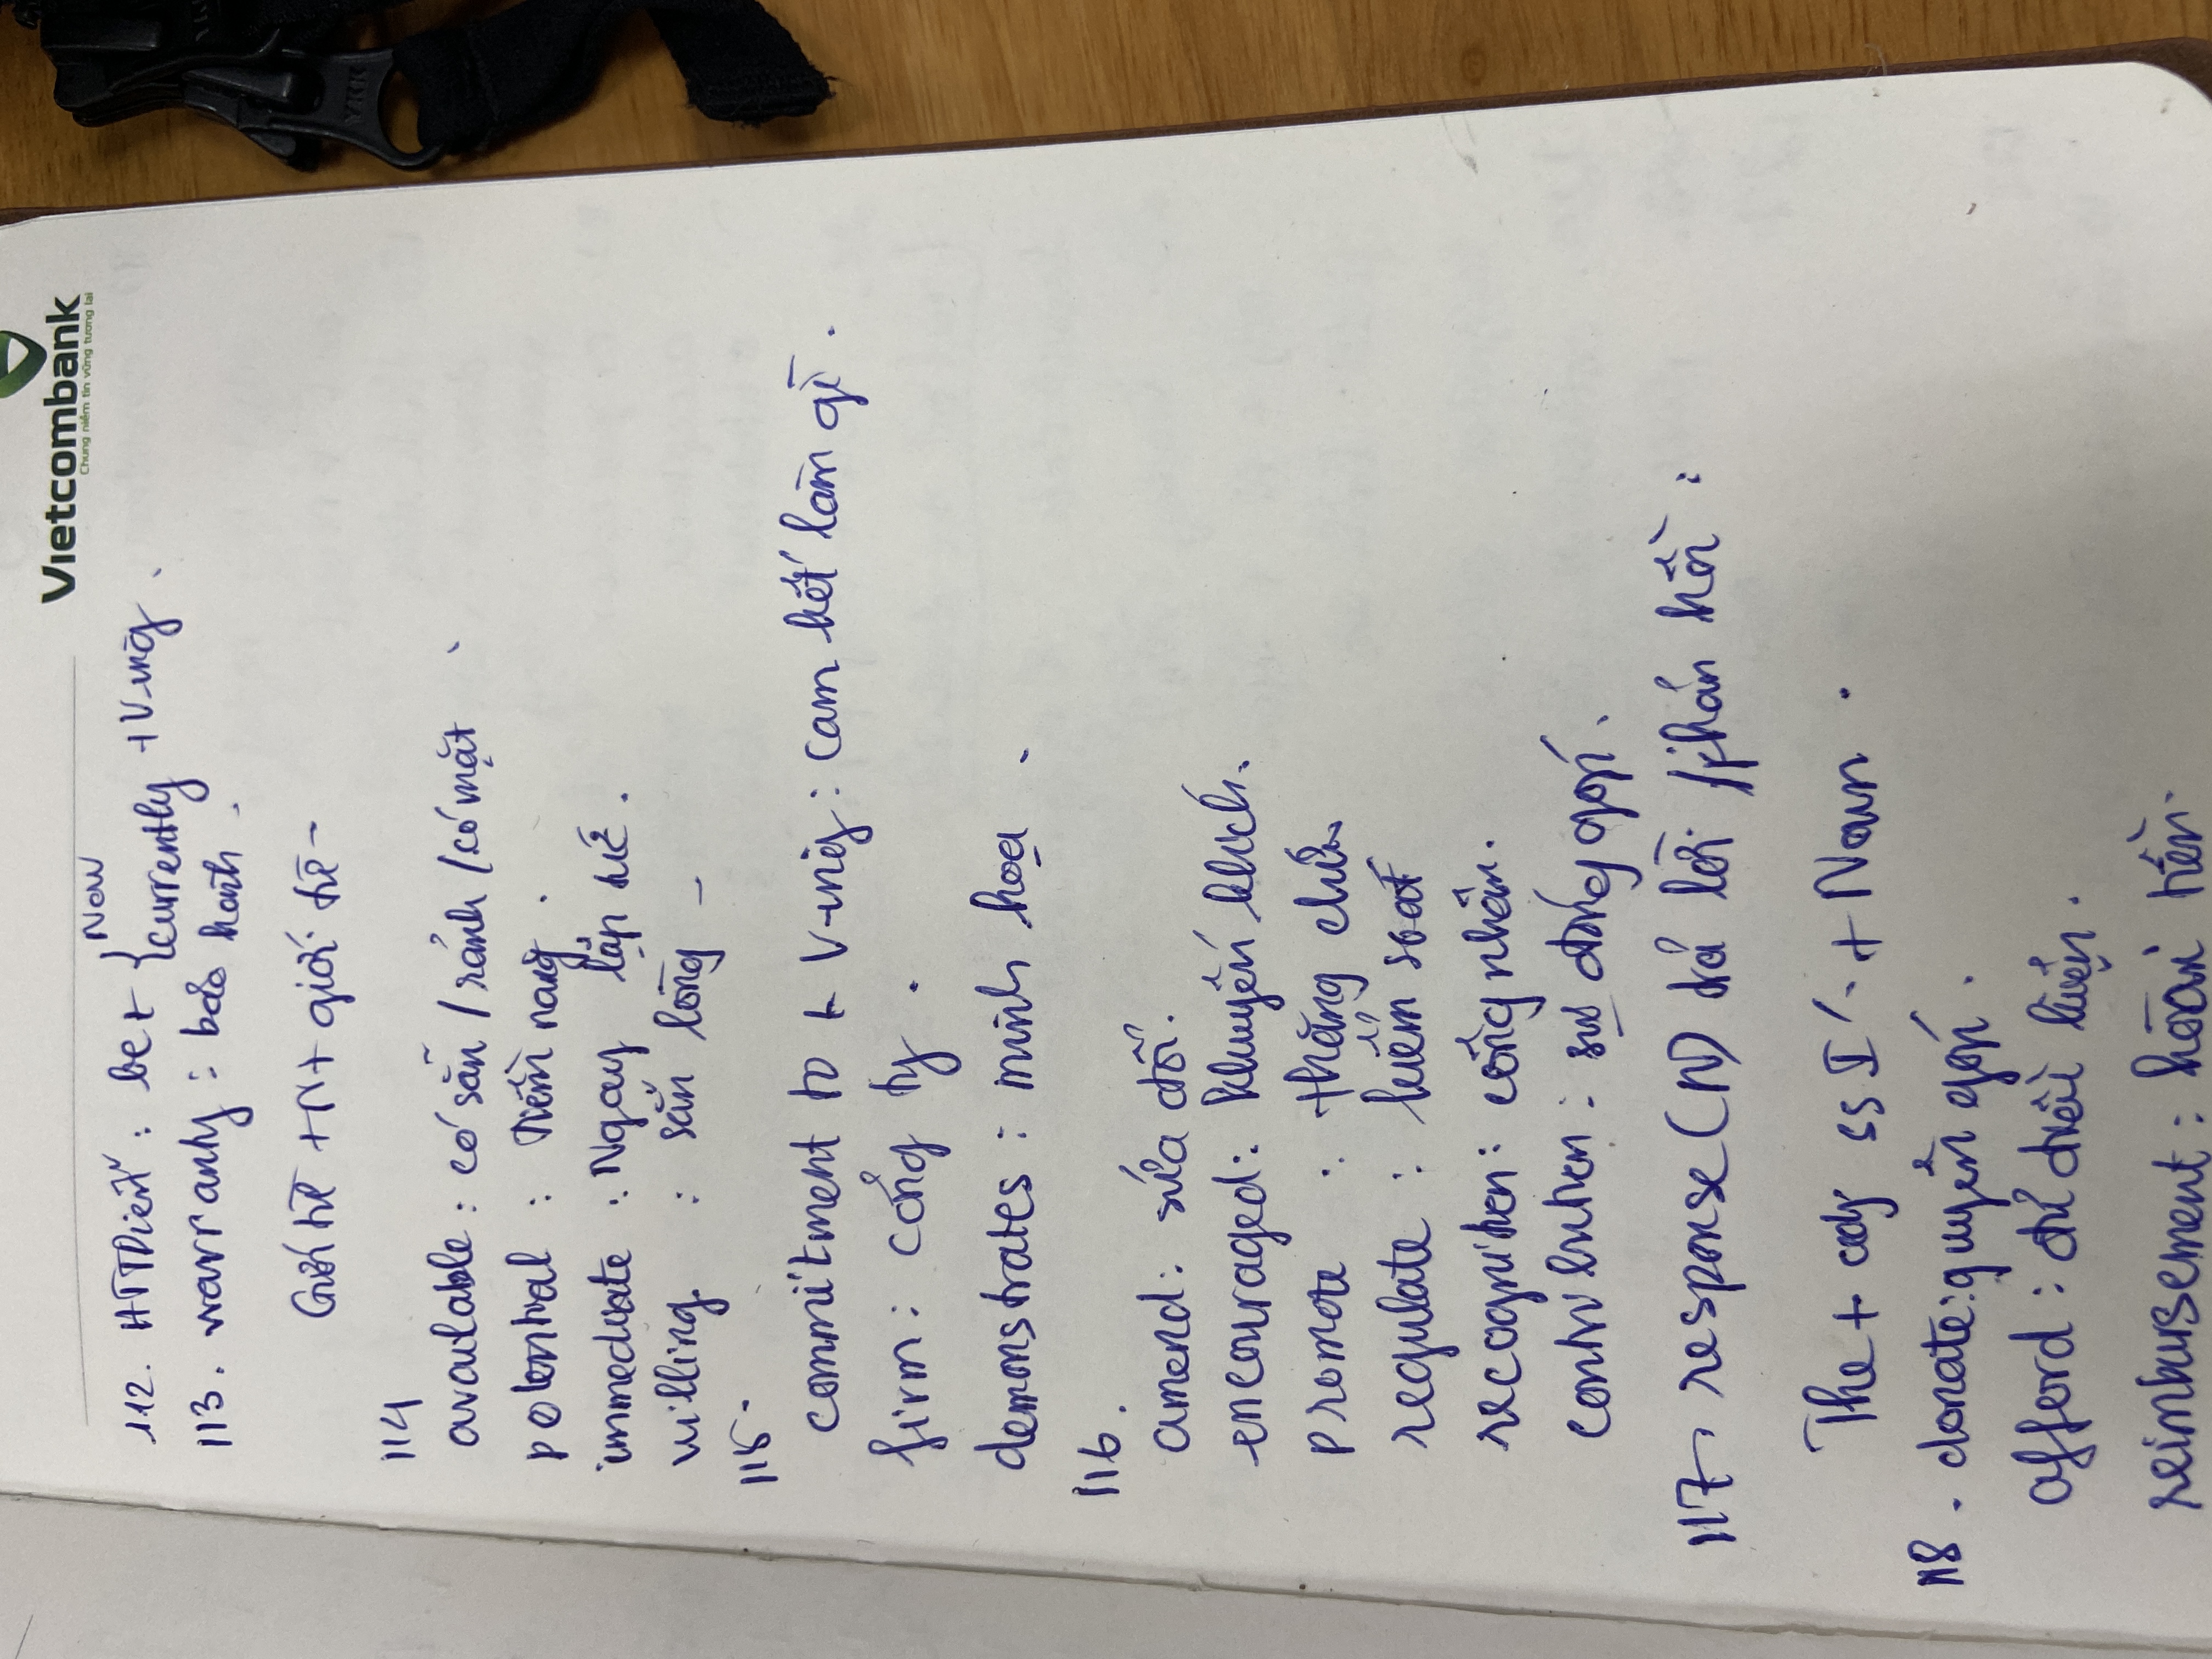 Vietcombank
Chung niềm tin vững tương lai
112. HTTDiễn : be + { Now / currently + V-ing .
113. warranty : bảo hành .
Giới từ + N + giới từ -
114
available : có sẵn / rảnh / có mặt
potential : tiềm năng .
immediate : Ngay lập tức .
willing : sẵn lòng -
115.
commitment to + V-ing : cam kết làm gì .
firm : công ty .
demonstrates : minh họa .
116 .
amend : sửa đổi .
encouraged : khuyến khích .
promote : thăng chức
regulate : kiểm soát
recognition : công nhận .
contribution : sự đóng góp .
117 . response (N) trả lời / phản hồi :
The + adj ss I + Noun .
118 . donate : quyên góp .
afford : đủ điều kiện .
reimbursement : hoàn tiền .
YKK